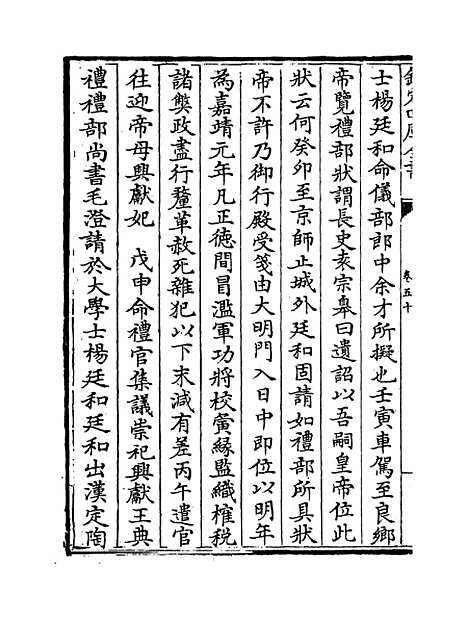 欽定四庫全書
卷五十
士楊廷和命儀部郎中余才所擬也壬寅車駕至良鄉
帝覽禮部狀謂長史袁宗臯曰遺詔以吾嗣皇帝位此
狀云何癸卯至京師止城外廷和固請如禮部所具狀
帝不許乃御行殿受箋由大明門入日中即位以明年
為嘉靖元年凡正徳間冒濫軍功將校寅縁監織榷税
諸獘政盡行釐革赦死雜犯以下末減有差丙午遣官
往迎帝母興獻妃　戊申命禮官集議崇祀興獻王典
禮禮部尚書毛澄請於大學士楊廷和廷和出漢定陶